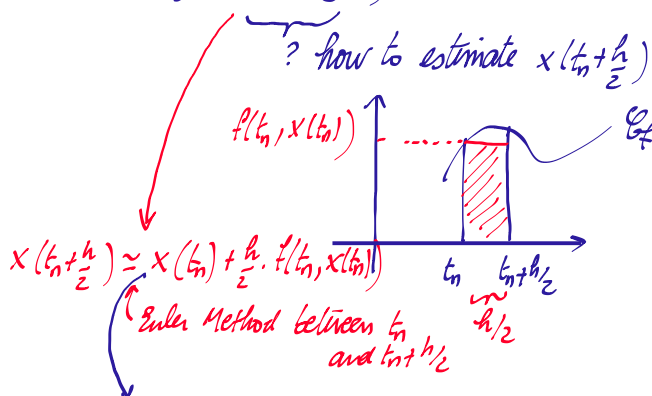 ? how to estimate x(tn+h/2)
f(tn, x(tn))
Cf
x(tn+h/2) ≃ x(tn) + h/2 . f(tn, x(tn))
tn
tn+h/2
h/2
Euler Method between tn
and tn+h/2